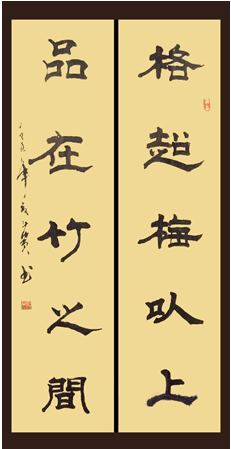 格超梅㕥上
品在竹之間